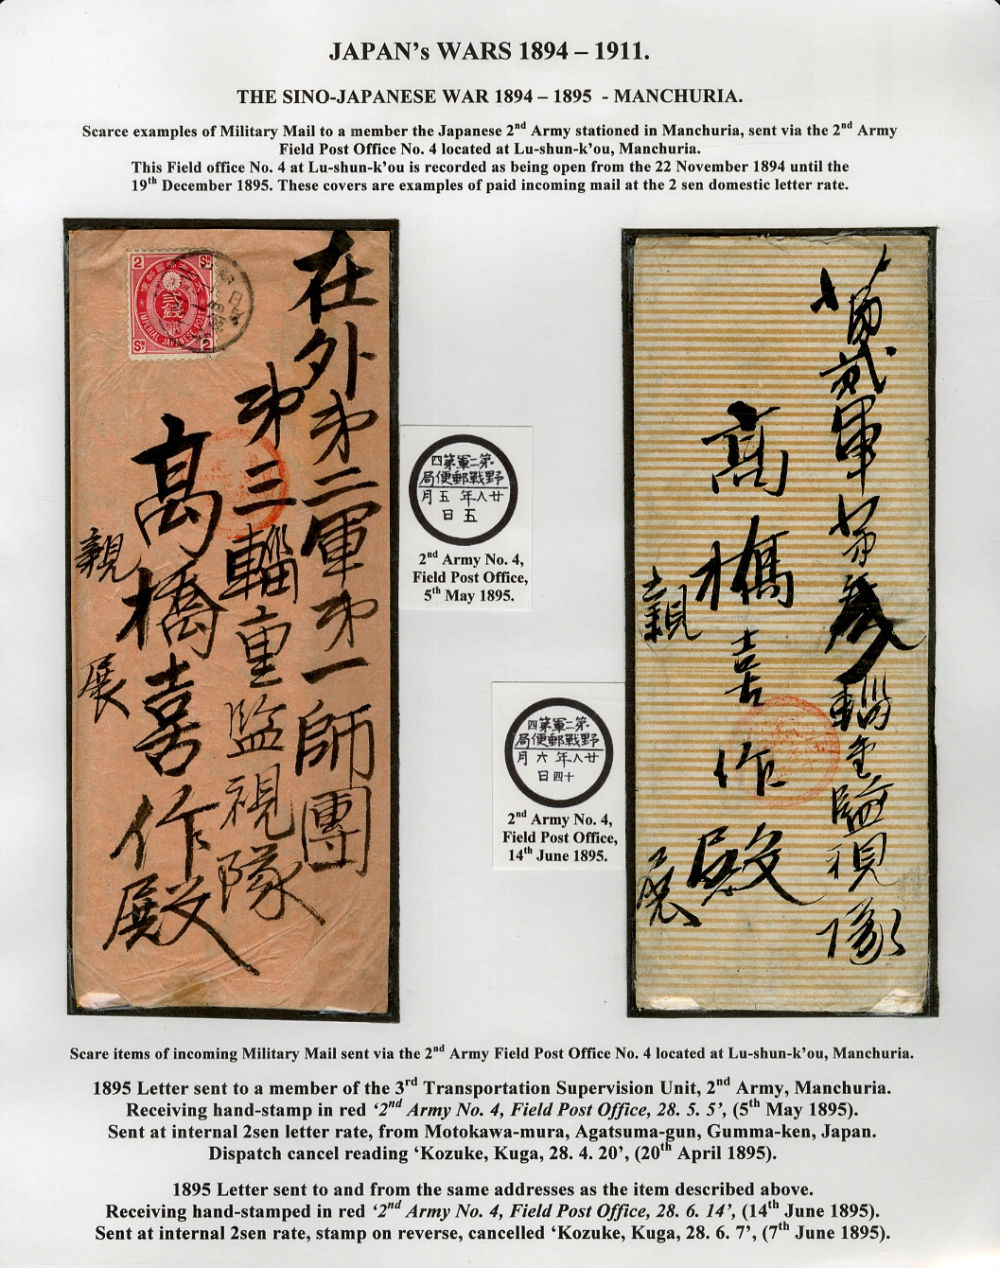 JAPAN's WARS 1894 – 1911.
THE SINO-JAPANESE WAR 1894 – 1895 - MANCHURIA.
Scarce examples of Military Mail to a member the Japanese 2nd Army stationed in Manchuria, sent via the 2nd Army
Field Post Office No. 4 located at Lu-shun-k'ou, Manchuria.
This Field office No. 4 at Lu-shun-k'ou is recorded as being open from the 22 November 1894 until the
19th December 1895. These covers are examples of paid incoming mail at the 2 sen domestic letter rate.
2 Sn
貳銭
IMPERIAL JAPANESE POST
Sn 2
在外第二軍第一師團
第三輜重監視隊
高橋喜作殿
親展
第二軍第四
野戰郵便局
廿八年五月
五日
2nd Army No. 4,
Field Post Office,
5th May 1895.
第貳軍第參輜重監視隊
高橋喜作殿
親展
第二軍第四
野戰郵便局
廿八年六月
十四日
2nd Army No. 4,
Field Post Office,
14th June 1895.
Scare items of incoming Military Mail sent via the 2nd Army Field Post Office No. 4 located at Lu-shun-k'ou, Manchuria.
1895 Letter sent to a member of the 3rd Transportation Supervision Unit, 2nd Army, Manchuria.
Receiving hand-stamp in red '2nd Army No. 4, Field Post Office, 28. 5. 5', (5th May 1895).
Sent at internal 2sen letter rate, from Motokawa-mura, Agatsuma-gun, Gumma-ken, Japan.
Dispatch cancel reading 'Kozuke, Kuga, 28. 4. 20', (20th April 1895).
1895 Letter sent to and from the same addresses as the item described above.
Receiving hand-stamped in red '2nd Army No. 4, Field Post Office, 28. 6. 14', (14th June 1895).
Sent at internal 2sen rate, stamp on reverse, cancelled 'Kozuke, Kuga, 28. 6. 7', (7th June 1895).